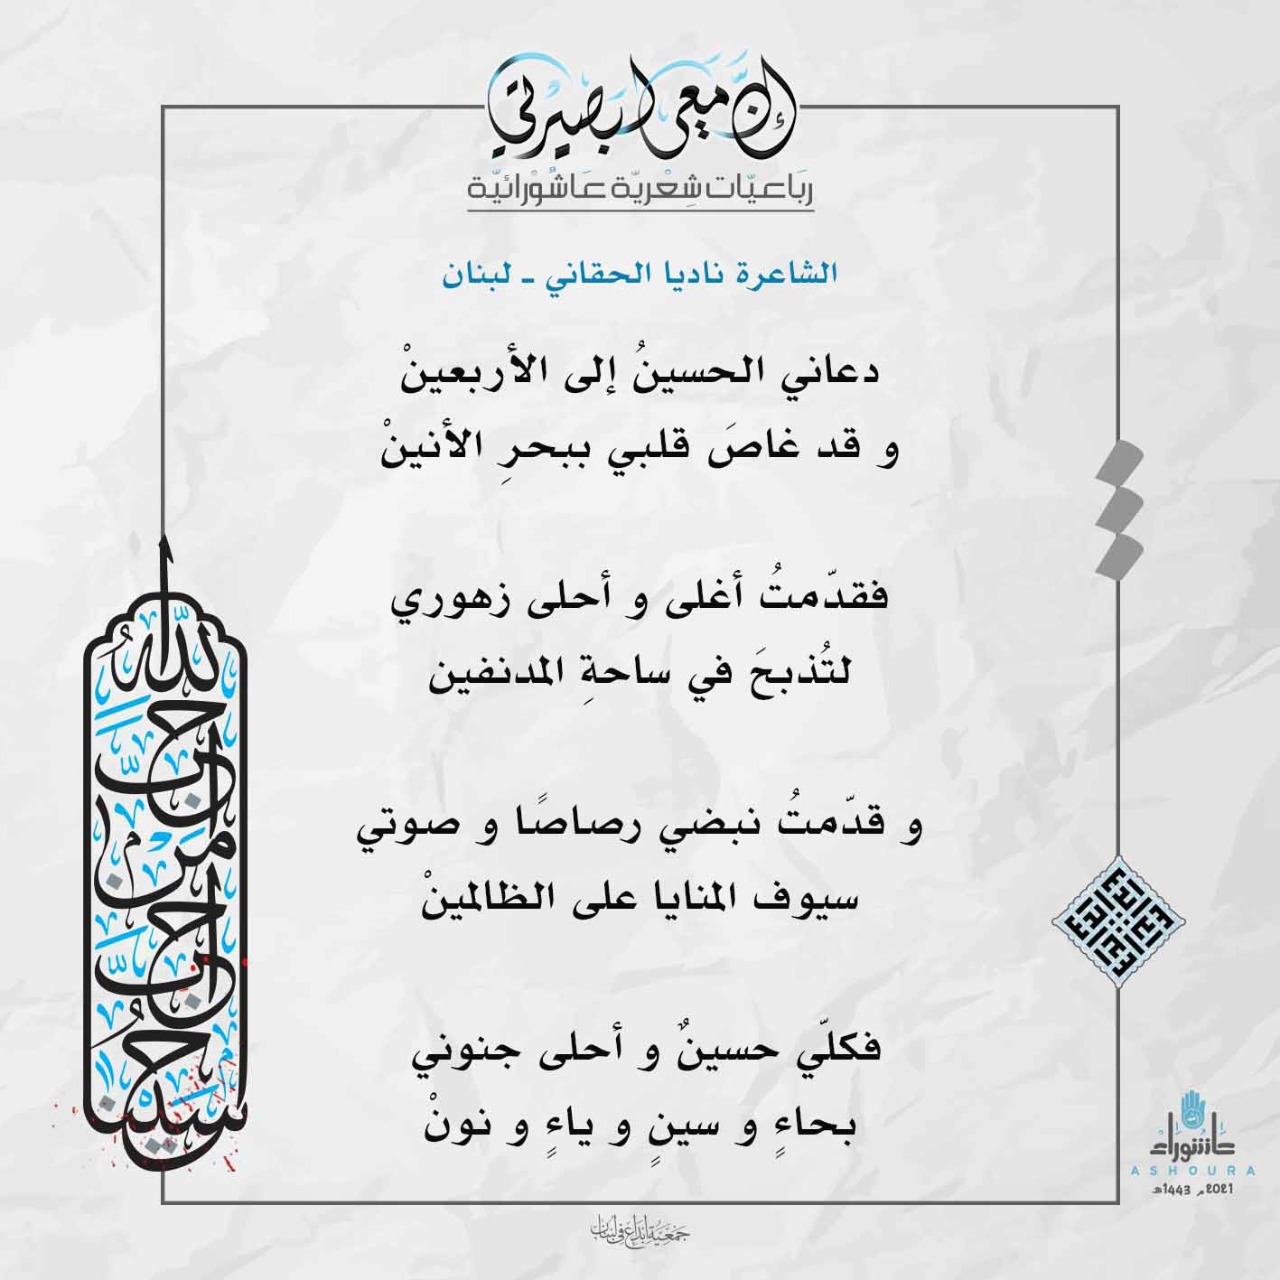 إنَّ معي لبصيرتي
رباعيّات شِعْريّة عاشُوْرائيّة
الشاعرة ناديا الحقاني ـ لبنان
دعاني الحسينُ إلى الأربعينْ
و قد غاصَ قلبي ببحرِ الأنينْ
فقدّمتُ أغلى و أحلى زهوري
لتُذبحَ في ساحةِ المدنفين
و قدّمتُ نبضي رصاصًا و صوتي
سيوف المنايا على الظالمينْ
فكلّي حسينٌ و أحلى جنوني
بحاءٍ و سينٍ و ياءٍ و نونْ
أحبَّ الله من أحبَّ حسينا
عاشوراء
ASHOURA
2021م 1443هـ
جمعية إبداع في لبنان